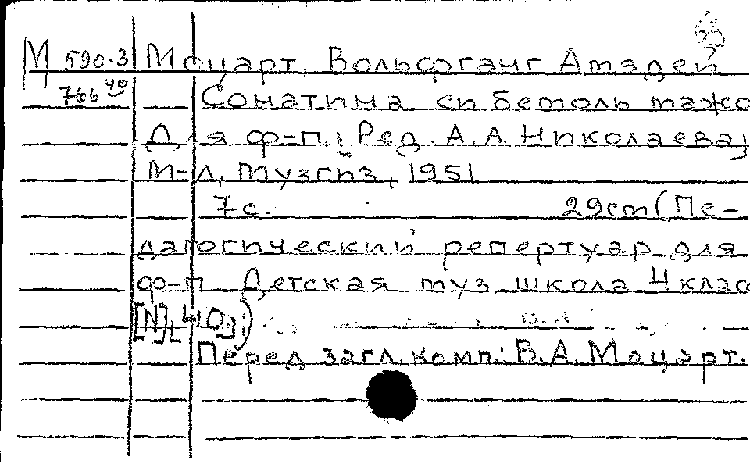 М 590-3 Моцарт, Вольфганг Амадей
766 Сонатина си бемоль мажо
Для ф-п. Ред. А.А Николаева,
М-Л, Музгиз, 1951
7с. 29cm (Пе-
дагогический репертуар для
ф-п Детская муз. школа 4 клас
[N], 40.)
Перед загл. комп.: В.А. Моцарт.